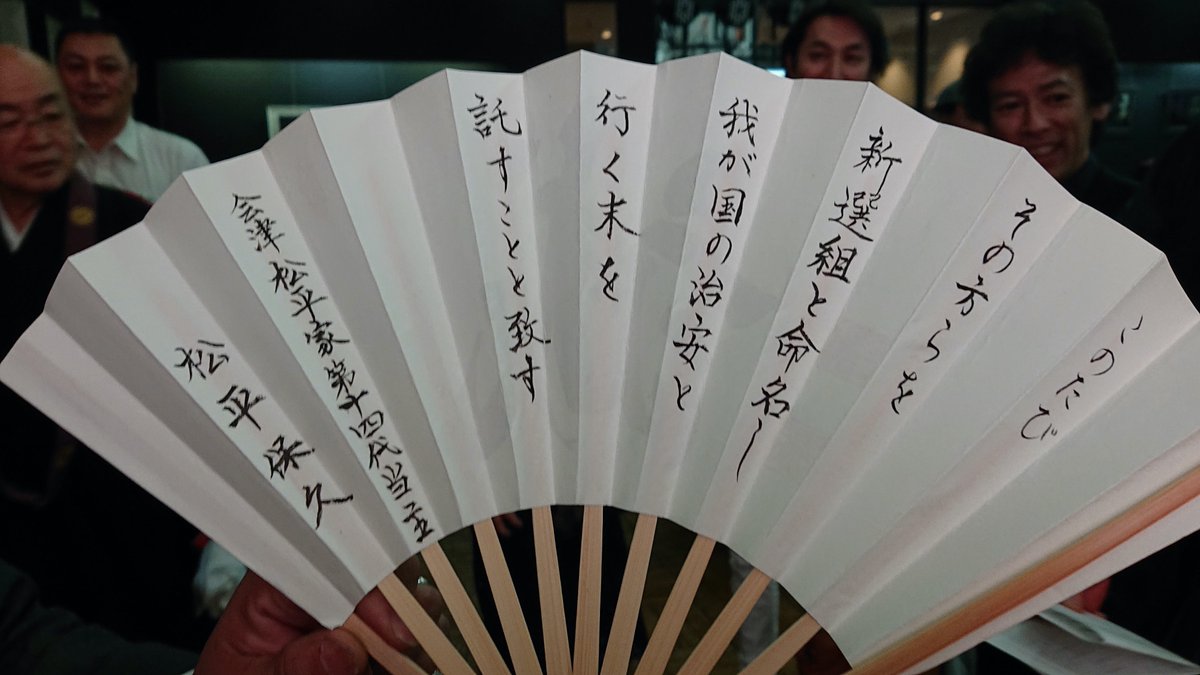 いのたび
その方らを
新選組と命名し
我が国の治安と
行く末を
託すことと致す
会津松平家第十四代当主
松平保久